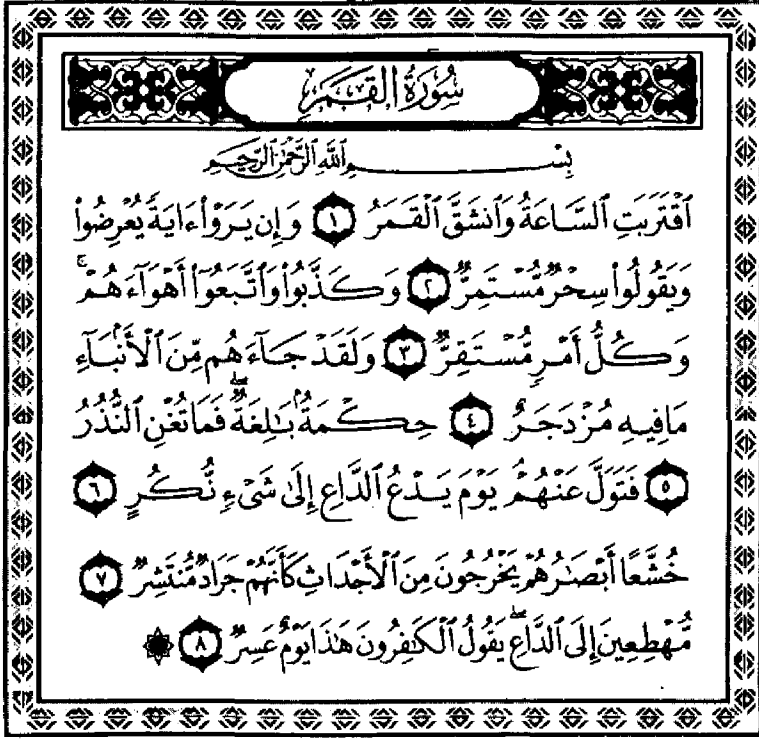 سُورَةُ القَمَرِ
بِسْمِ اللَّهِ الرَّحْمَٰنِ الرَّحِيمِ
ٱقْتَرَبَتِ ٱلسَّاعَةُ وَٱنشَقَّ ٱلْقَمَرُ ١ وَإِن يَرَوْا۟ ءَايَةً يُعْرِضُوا۟
وَيَقُولُوا۟ سِحْرٌ مُّسْتَمِرٌّ ٢ وَكَذَّبُوا۟ وَٱتَّبَعُوٓا۟ أَهْوَآءَهُمْ ۚ
وَكُلُّ أَمْرٍ مُّسْتَقِرٌّ ٣ وَلَقَدْ جَآءَهُم مِّنَ ٱلْأَنۢبَآءِ
مَا فِيهِ مُزْدَجَرٌ ٤ حِكْمَةٌۢ بَٰلِغَةٌ ۖ فَمَا تُغْنِ ٱلنُّذُرُ
٥ فَتَوَلَّ عَنْهُمْ ۘ يَوْمَ يَدْعُ ٱلدَّاعِ إِلَىٰ شَىْءٍ نُّكُرٍ ٦
خُشَّعًا أَبْصَٰرُهُمْ يَخْرُجُونَ مِنَ ٱلْأَجْدَاثِ كَأَنَّهُمْ جَرَادٌ مُّنتَشِرٌ ٧
مُّهْطِعِينَ إِلَى ٱلدَّاعِ ۖ يَقُولُ ٱلْكَٰفِرُونَ هَٰذَا يَوْمٌ عَسِرٌ ٨